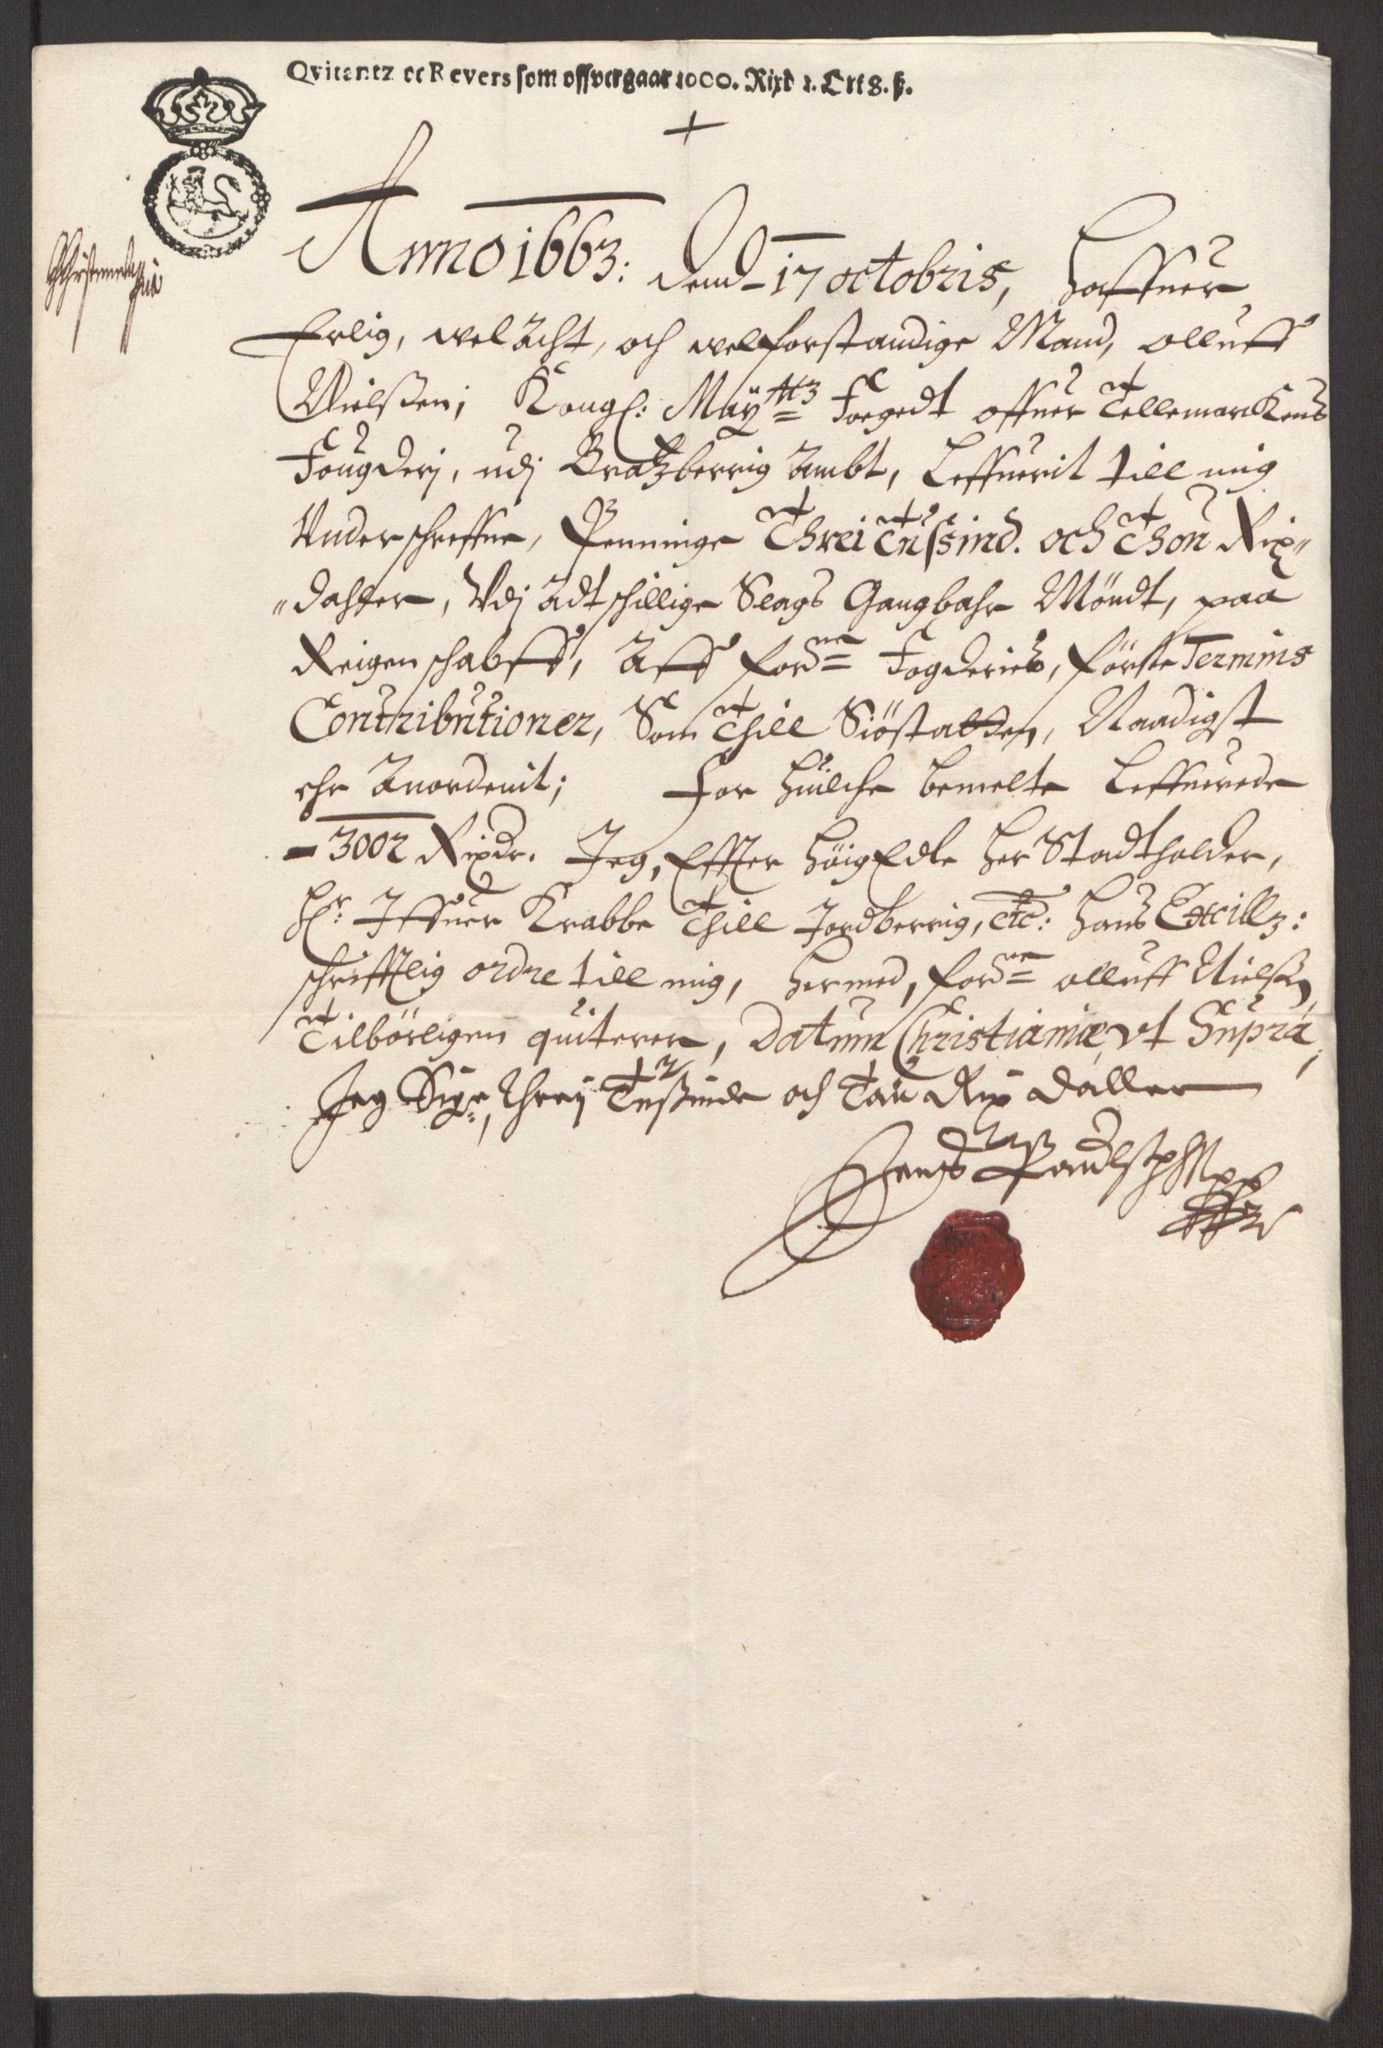 Qvitantz oc Revers som offvergaar 1000. Rixd 1. Ort 8. ß.
Anno 1663: Dend 17 octobris, Haffuer
Erlig, wel Acht, och welforstandige Mand, Olluff
Nielßen, Kongl: Maÿttz Foegedt offuer Tellemarckens
Fougderj, udj Bratzberrig Ambt, Leffuerit till mig
Underschreffne, Penninge Threi Tussind. och Thou Rix-
daller, Udj Adtschillige Slags Gangbahr Möndt, paa
Reigenschabff, Aff fordne Fogderies, förste Termins
Contributioner, Som Thill Siöstatten, Naadigst
ehr Anordenit; For huilche bemelte Leffuerede
3002 Rixdr. Jeg, Effter HöigEdle Her Stadtholder,
Hr: Iffuer Krabbe Thill Jordberrig, etc: Hans Excillz:
schrifftlig ordre till mig, hermed, fordne olluff Nielßen,
Tilbörligen quiterer, Datum Christianiæ, vt Supra,
Jeg Siger, Threj Tußinde och Tou Rix daller